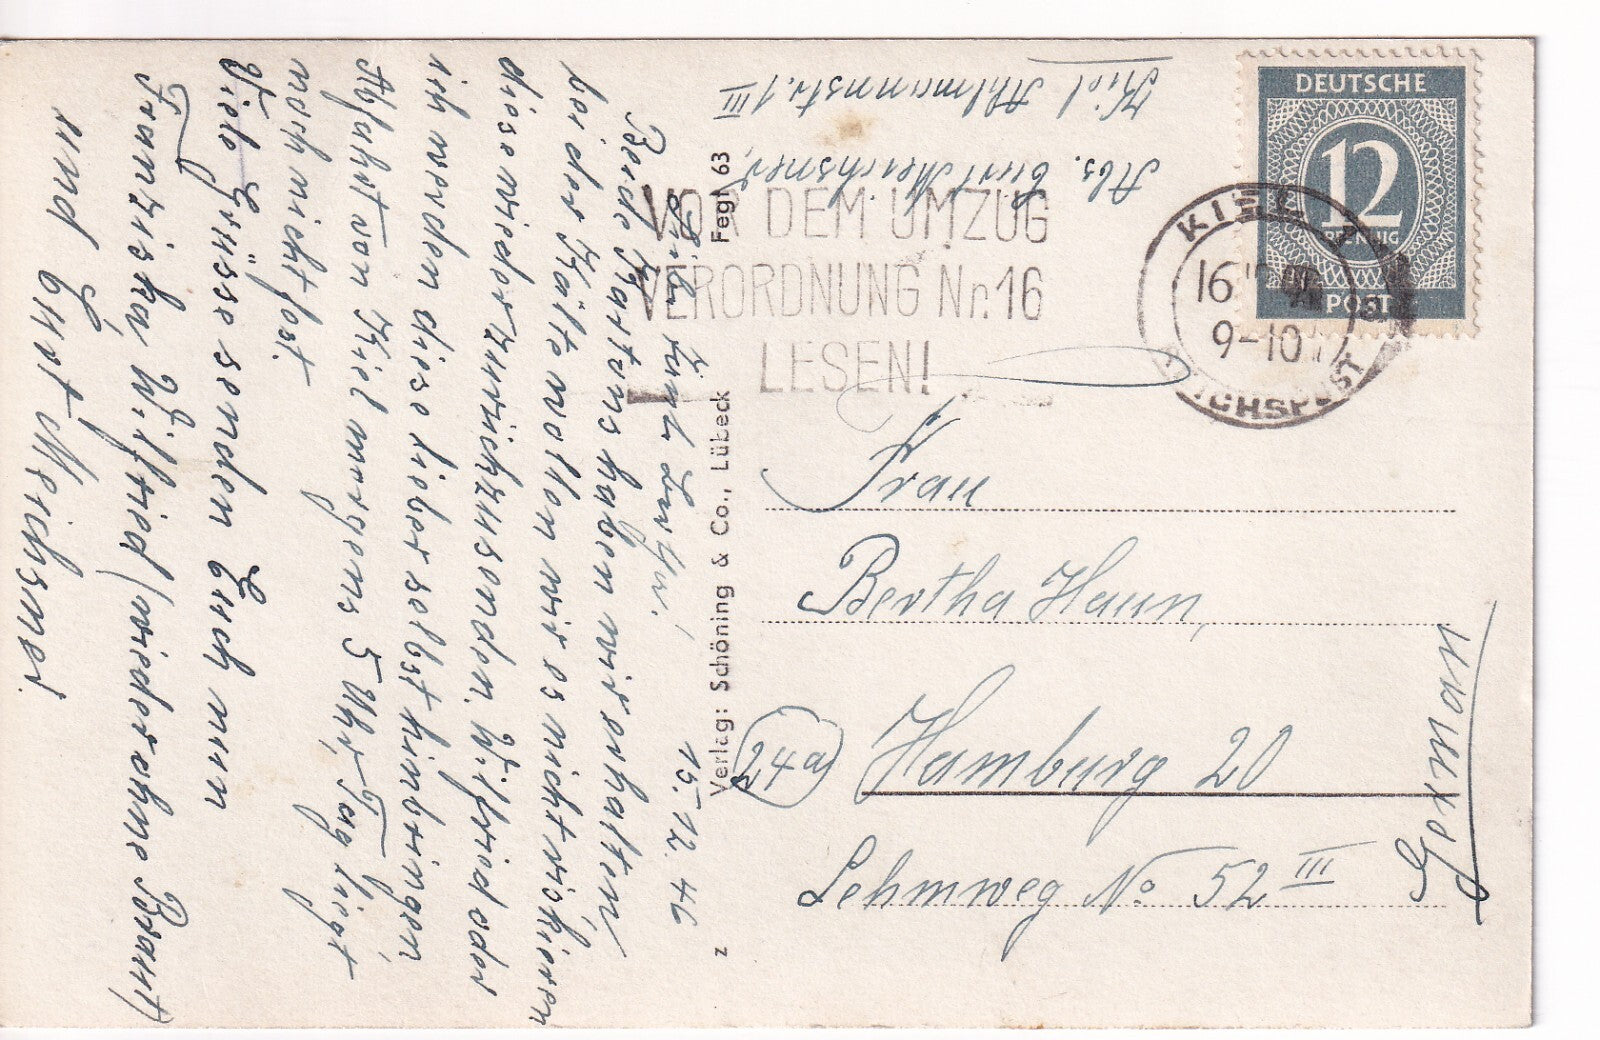 15.12.46
Liebe Tante
Beide Kartons haben wir erhalten,
bei der Kälte wollen wir es nicht riskieren
diese wieder zurückzusenden. Wilfried oder
ich werden diese lieber selbst hinbringen,
Abfahrt von Kiel morgens 5 Uhr, Tag liegt
noch nicht fest.
Viele Grüsse senden Euch nun
Franziska, Wilfried (wieder ohne Braut)
und Curt Meichsner.
Abs. Curt Meichsner,
Kiel Ahlmannstr. 1 III
z Verlag: Schöning & Co., Lübeck Fegl 63
VOR DEM UMZUG
VERORDNUNG Nr. 16
LESEN!
KIEL
16
9-10
REICHSPOST
DEUTSCHE
12
PFENNIG
POST
Frau
Bertha Haun,
24a Hamburg 20
Lehmweg No 52 III
Germany